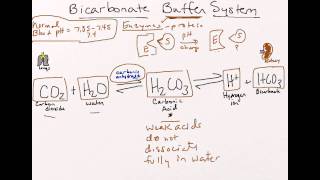 Bicarbonate Buffer System
Normal
Blood pH = 7.35-7.45
7.4
Enzymes - protein
E S pH E S
charge
lungs
carbonic
anhydrase
CO2 + H2O H2CO3 H+ + HCO3
Carbon
dioxide
water
Carbonic
Acid
Hydrogen
ion
Bicarbonate
weak acids
do not
dissociate
fully in water